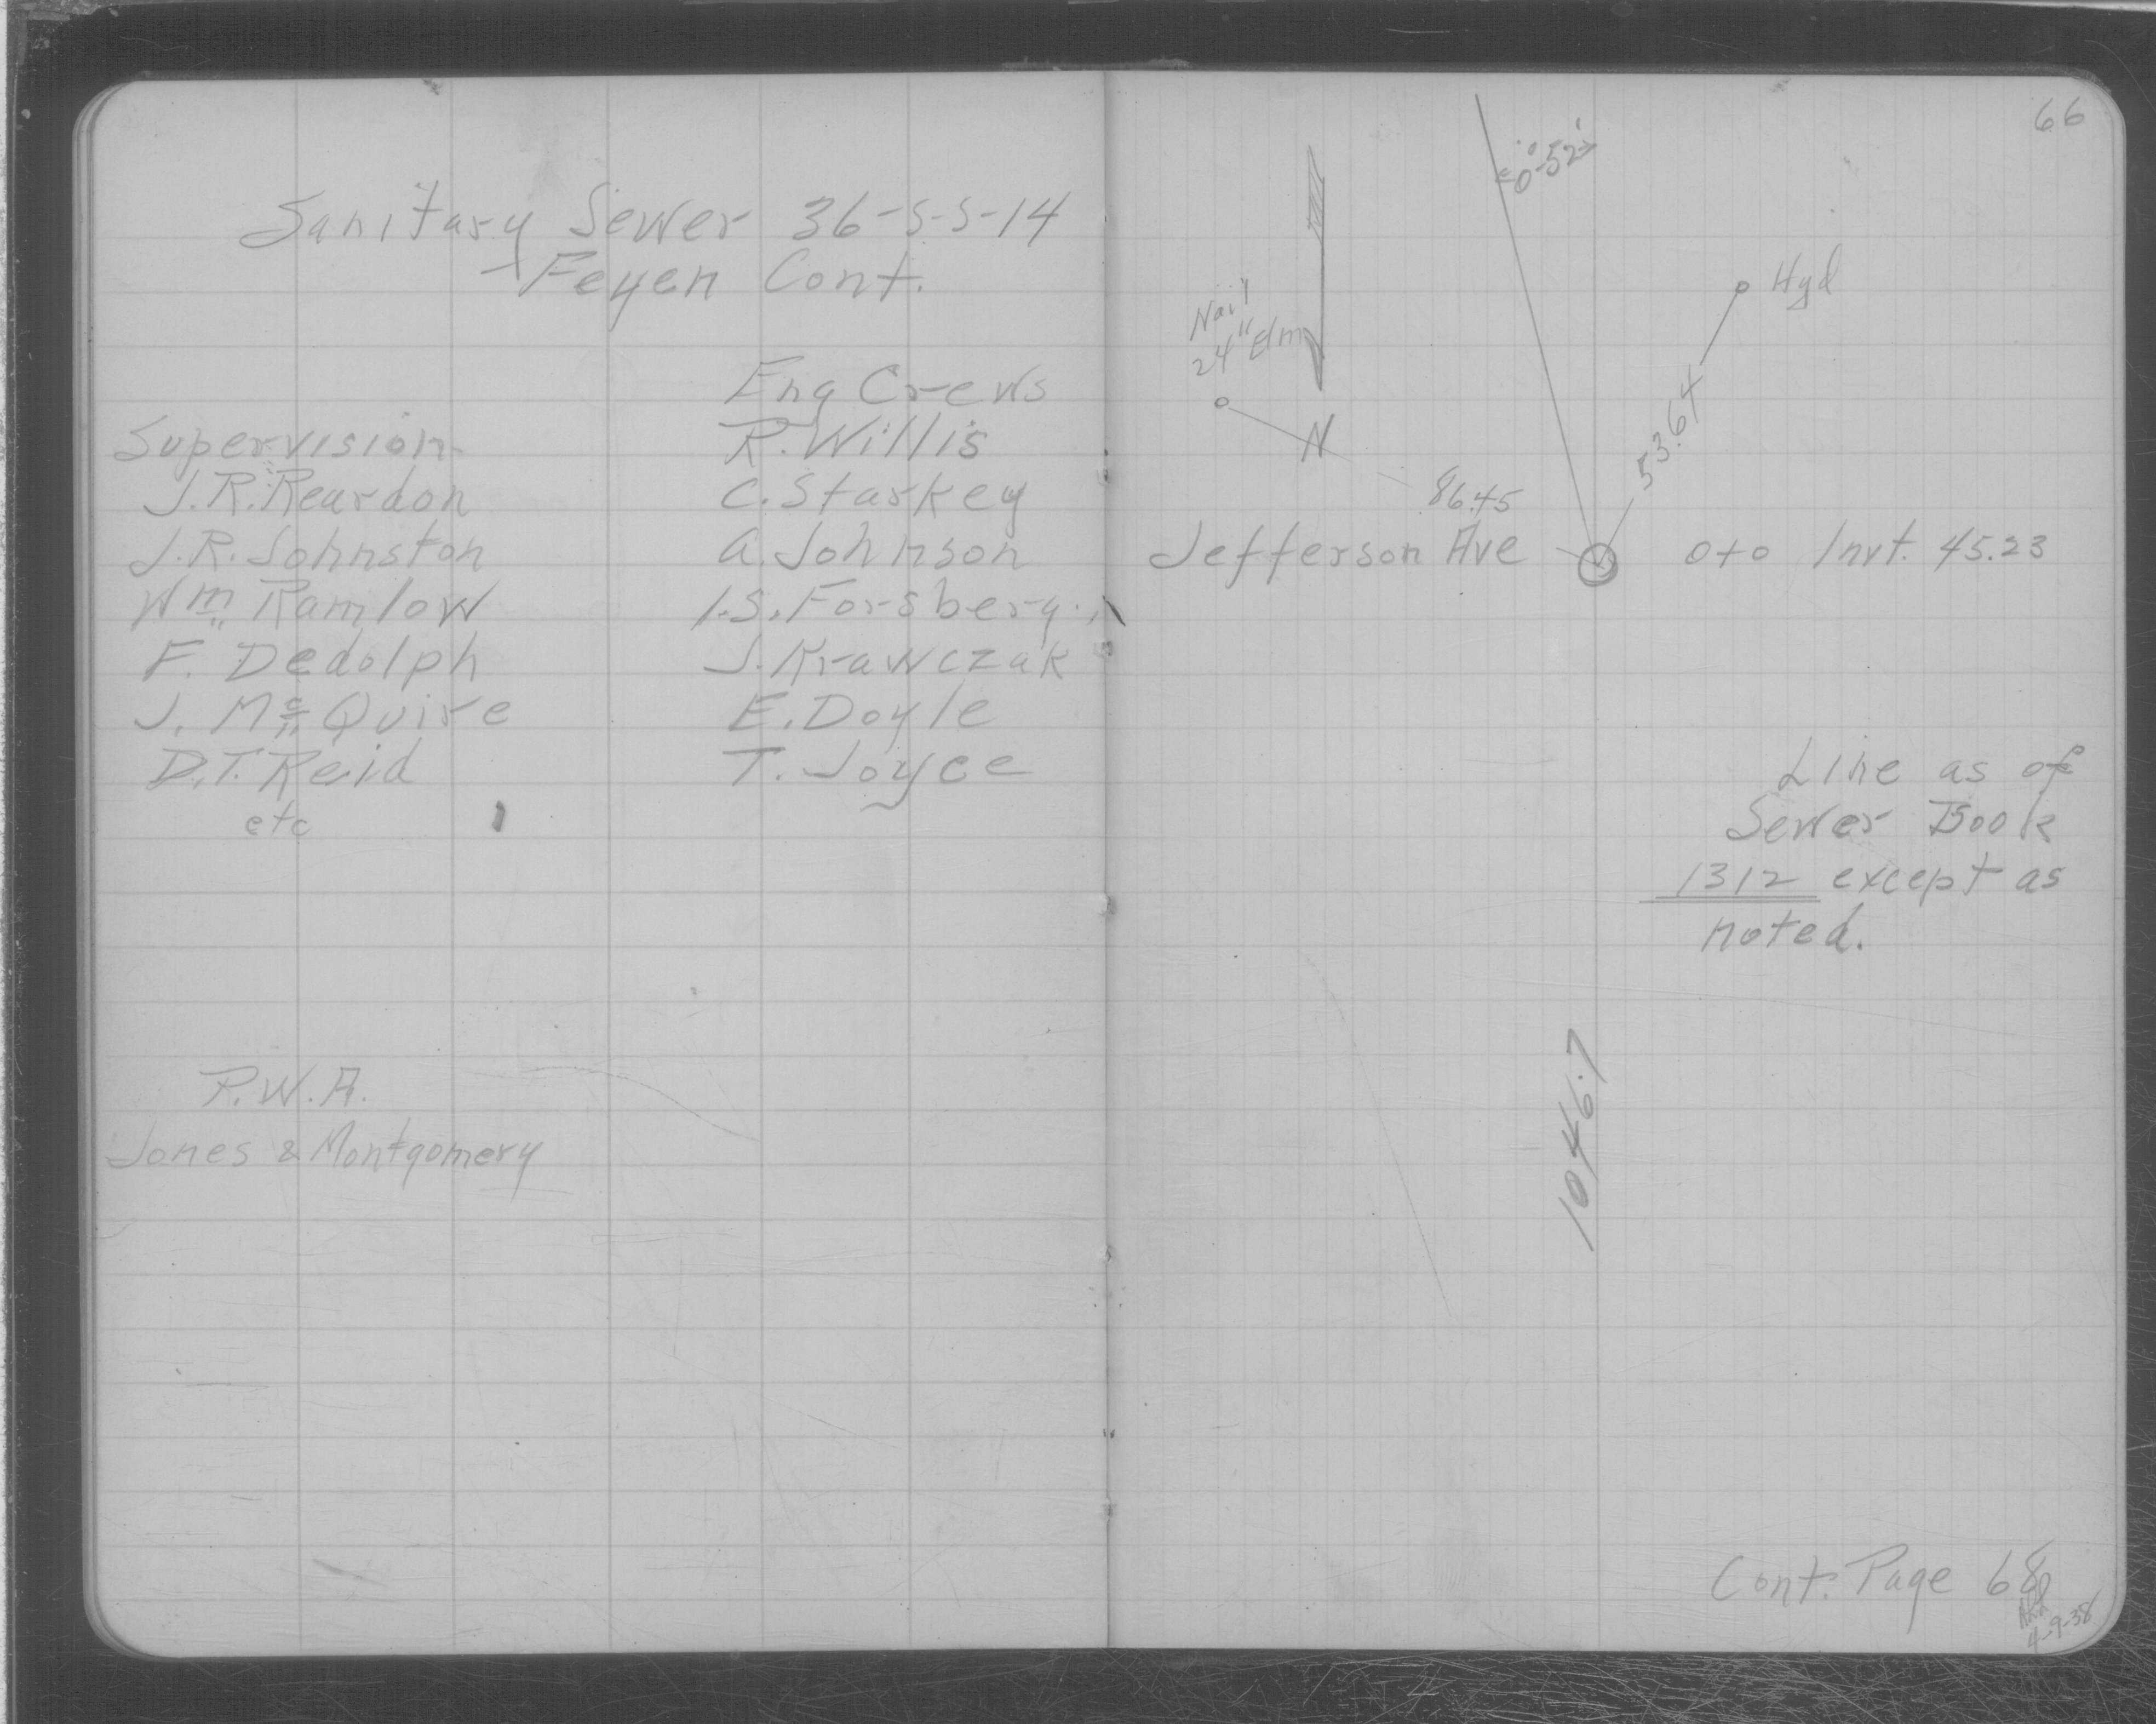 Sanitary Sewer 36-S-S-14
Feyen Cont.
Eng Crews
Supervision
R. Willis
J.R. Reardon
C. Starkey
J.R. Johnston
A. Johnson
Wm Ramlow
I.S. Forsberg
F. Dedolph
J. Krawczak
J. Mc Quire
E. Doyle
D.T. Reid
T. Joyce
etc
P.W.A.
Jones & Montgomery
66
0°-52'
Hyd
Nail
24" Elm
N
53.64
86.45
Jefferson Ave
0+0 Invt. 45.23
Line as of
Sewer Book
1312 except as
noted.
1046.7
Cont. Page 68
4-9-38